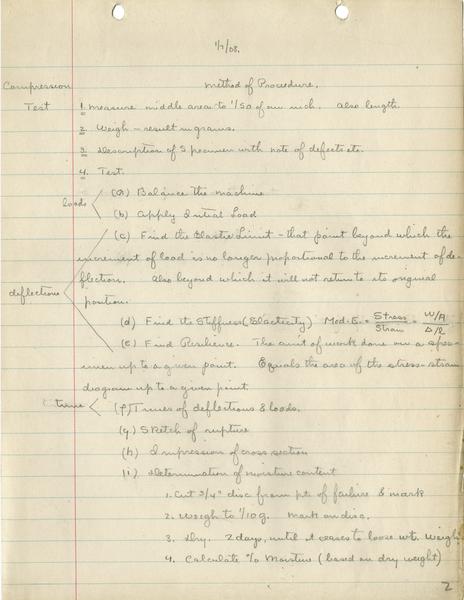 1/7/08.
Compression Method of Procedure.
Test 1. Measure middle area to 1/50 of an inch. Also length.
2. Weigh - result in grams.
3. Description of Specimen with note of defects etc.
4. Test.
(a) Balance the machine
loads
(b) Apply Initial Load
(c) Find the Elastic Limit - that point beyond which the
increment of load is no longer proportional to the increment of de-
flection. Also beyond which it will not return to its original
deflections position.
(d) Find the Stiffness (Elasticity) Mod. E. = Stress/Strain = W/A / D/L
(e) Find Resilience. The am't of work done on a spec-
imen up to a given point. Equals the area of the stress-strain
diagram up to a given point
time (f) Times of deflections & loads.
(g) Sketch of rupture
(h) Impression of cross section
(i) Determination of moisture content
1. Cut 3/4" disc from pt. of failure & mark
2. Weigh to 1/10 g. Mark on disc.
3. Dry. 2 days, until it ceases to loose wt. Weigh
4. Calculate % Moisture (based on dry weight)
2